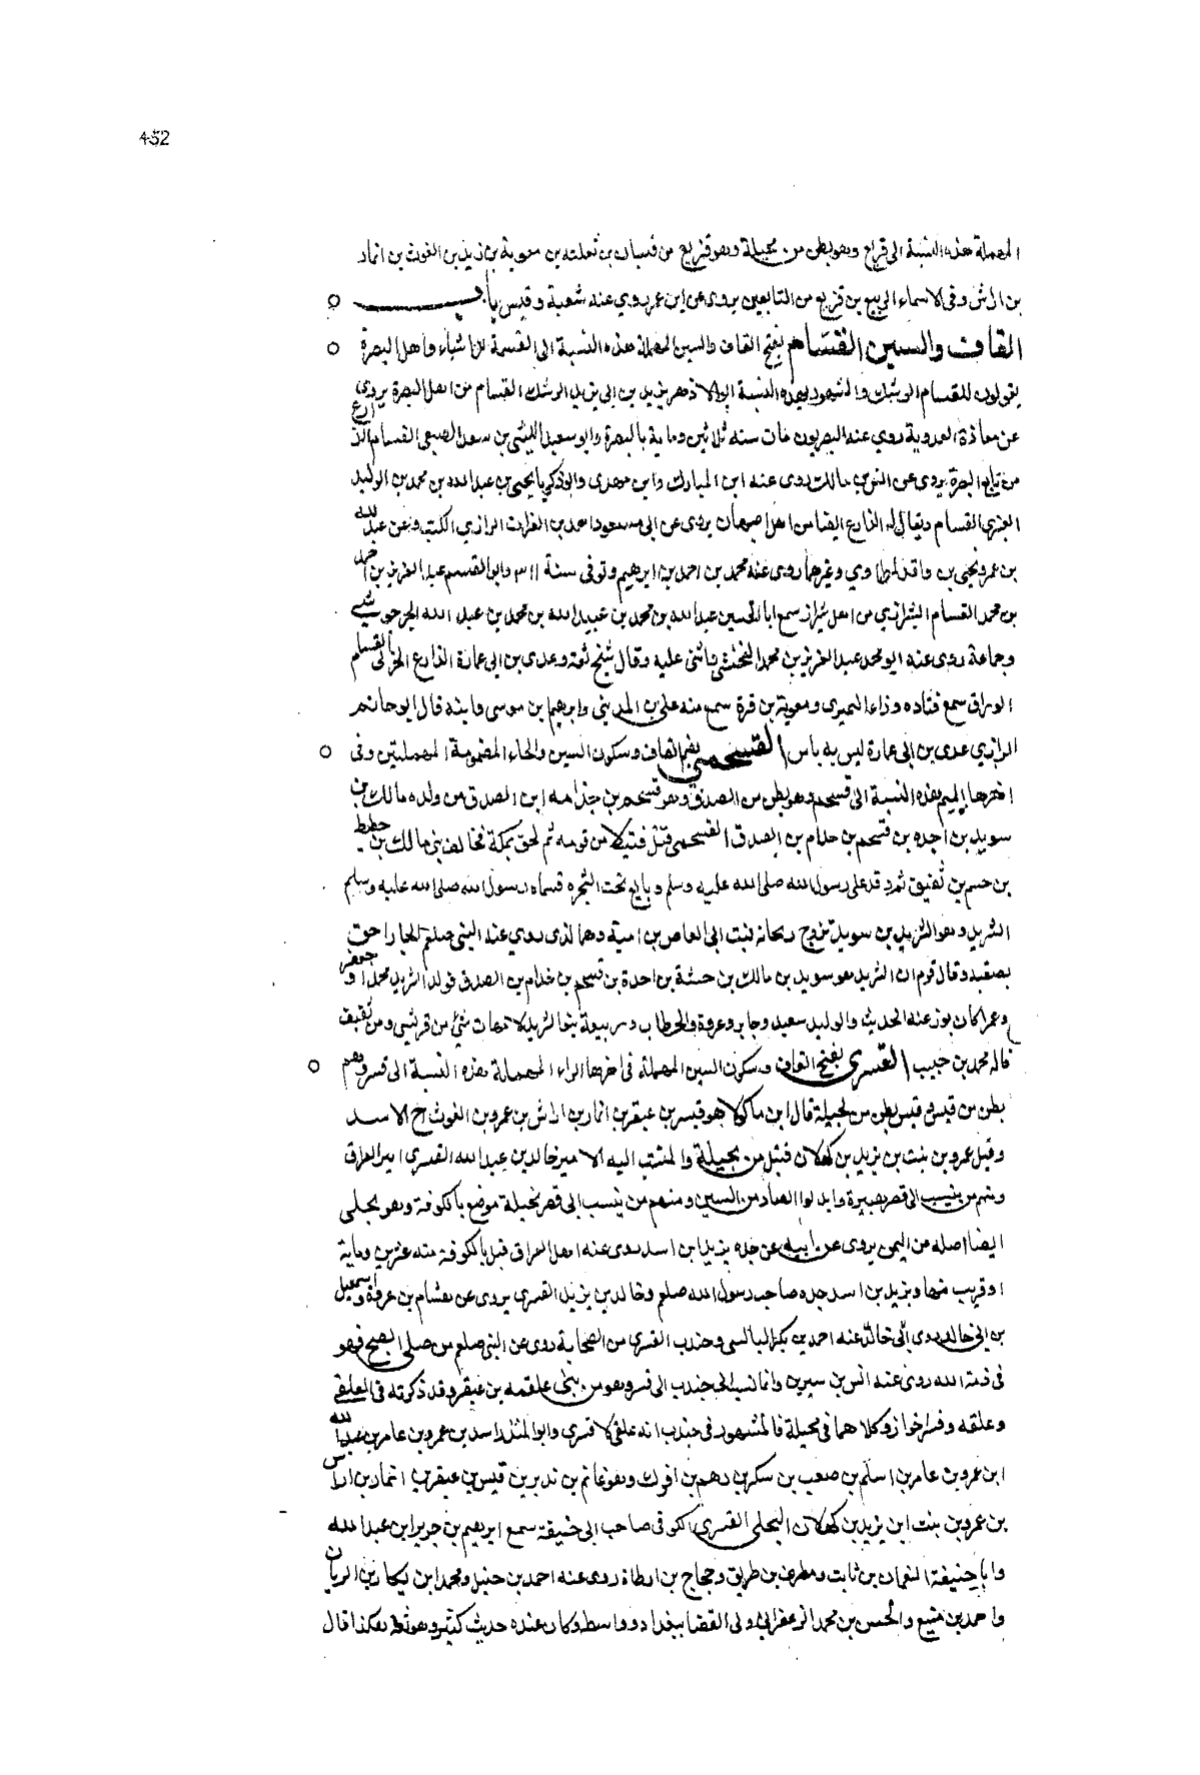 452
المهملة هذه النسبة الى قريع وهو بطن من بجيلة وهو قريع من فتيان بن ثعلبة بن معوية بن زيد بن الغوث بن انمار
بن اراش وفى الاسماء الربيع بن قريع من التابعين يروى عن ابن عمر روى عنه شعبة وقيس
القاف والسين القسام بفتح القاف والسين المهملة هذه النسبة الى القسمة للاشياء واهل البصرة
يقولون للقسام الرشك والمشهور بهذه النسبة ابو الازهر يزيد بن ابى يزيد الرشك القسام من اهل البصرة يروى
عن معاذة العدوية روى عنه البصريون مات سنة ثلاثين وماية بالبصرة وابو سعيد المثنى بن سعد الضبعى القسام الذارع
من تابع البصرة يروى عن انس بن مالك روى عنه ابن المبارك وابن مهدى وابو زكريا يحيى بن عبد الله بن محمد بن الوليد
العنبرى القسام ويقال له الذارع ايضا من اهل اصبهان يروى عن ابى مسعود احمد بن الفرات الرازي الكتب وعن عبد الله
بن عمر ويحيى بن واقد الطاوي وغيرهما روى عنه محمد بن احمد بن ابرهيم وتوفى سنة ٣١١ وابو القسم عبد العزيز بن احمد
بن محمد القسام الشيرازي من اهل شيراز سمع ابا الحسين عبد الله بن محمد بن عبيد الله بن محمد بن عبد الله الخرجوشي
وجماعة روى عنه ابو محمد عبد العزيز بن محمد النخشبى واثنى عليه وقال شيخ ثقة وعدى بن ابى عمارة الذارع الجرمى القسام
الوراق سمع قتاده وزياد النميرى ومعوية بن قرة سمع منه على بن المدينى وابرهيم بن موسى وابنه قال ابو حاتم
الرازي عدى بن ابى عمارة ليس به باس القسحمى بضم القاف وسكون السين والحاء المضمومة المهملتين وفى
اخرها الميم هذه النسبة الى قسحم وهو بطن من الصدف وهو قسحم بن جذام ابن الصدف من ولده مالك بن
سويد بن اجده بن قسحم بن حذام بن الصدف القسحمى قتل قتيلا من قومه ثم لحق بمكة فحالف بنى مالك بن حطيط
بن جسم بن ثقيف ثم وفد على رسول الله صلى الله عليه وسلم وبايع تحت الشجره فسماه رسول الله صلى الله عليه وسلم
الشريد وهو الشريد بن سويد تزوج ريحانه بنت ابى العاص بن امية وهو الذى روى عنه النبى صلعم الجار احق
بصقبه وقال قوم ان الشريد هو سويد بن مالك بن حسنة بن احدة بن قسحم بن حذام بن الصدف فولد الشريد محمدا وجعفر
وعمر كان يوخذ عنه الحديث والوليد سعيد وجابر وعروة والحرث وربيعة بنو الشريد لامهات شتى من قريش ومن ثقيف
قاله محمد بن حبيب القسرى بفتح القاف وسكون السين المهملة فى اخرها الراء المهملة هذه النسبة الى قسر وهم
بطن من قيس وقيس بطن من بجيلة قال ابن ماكولا هو قيسر بن عبقر بن انمار بن اراش بن عمرو بن الغوث اخ الاسد
وقيل عمرو بن بنت بن يزيد بن كهلان فقيل من بجيلة والمنتسب اليه الامير خالد بن عبد الله القسرى امير العراق
ومنهم من ينسب الى قصر هبيرة وابدلوا الصاد من السين ومنهم من ينسب الى قصر بجيلة موضع بالكوفة وهو بجلى
ايضا اصله من اليمن يروى عن ابيه عن جده يزيد ابن اسد روى عنه اهل العراق قتل بالكوفة سنه عشرين وماية
او قريب منها ويزيد بن اسد جده صاحب رسول الله صلعم وخالد بن يزيد القسرى يروى عن هشام بن عروة واسمعيل
بن ابى خالد روى عنه احمد بن بكر البالسى وجندب القسرى من الصحابة روى عن النبى صلعم من صلى الصبح فهو
فى ذمة الله روى عنه انس بن سيرين وانما نسب الى جندب الى قسر وهو من بنى علقمه بن عبقر وقد ذكرته فى العلقى
وعلقه وقسر اخوان وكلاهما فى بجيلة فالمشهور فى جندب انه علقى لا قسرى وابو المنذر اسد بن عمرو بن عامر بن عبد الله
ابن عمرو بن عامر بن اسلم بن صعب بن سكر بن دهم بن افرك وهو غانم بن ندير بن قيس بن عبقر بن انمار بن اراش
بن عمرو بن بنت ابن يزيد بن كهلان البجلى القسرى الكوفى صاحب ابى حنيفة سمع ابرهيم بن جرير ابن عبد الله
وابا حنيفة النعمان بن ثابت ومطرف بن طريف وحجاج بن ارطاة روى عنه احمد بن حنبل ومحمد ابن بكار بن الريان
واحمد بن منيع والحسن بن محمد الزعفرانى وولى القضا ببغداد وواسط وكان عنده حديث كثير وهو ثقة هكذا قال